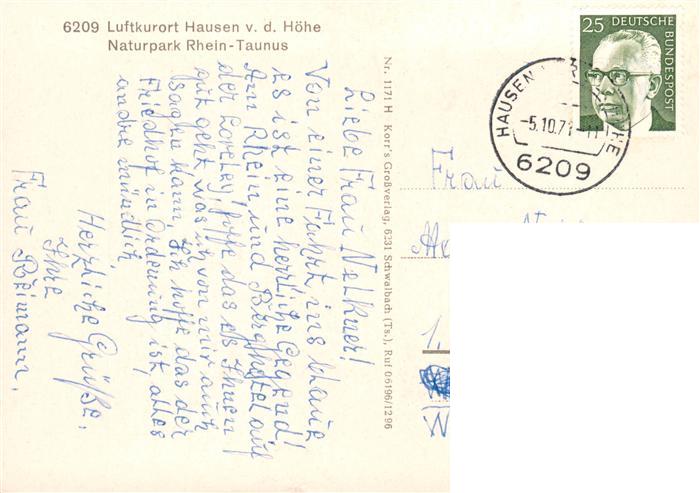 6209 Luftkurort Hausen v. d. Höhe
Naturpark Rhein-Taunus
Liebe Frau Nelkner!
Von einer Fahrt ins blaue
es ist eine herrliche Gegend!
Am Rhein und Berghotel auf
der Loreley, hoffe das es Ihnen
gut geht was ich von mir auch
sagen kann, Ich hoffe das der
Friedhof in Ordnung ist, alles
andre mündlich
Herzliche Grüße.
Ihre
Frau Reimann.
Nr. 1171 H Korr's Großverlag, 6231 Schwalbach (Ts.), Ruf 06196/1296
25 DEUTSCHE
BUNDESPOST
HAUSEN
-5.10.71-11
6209
Frau
1.